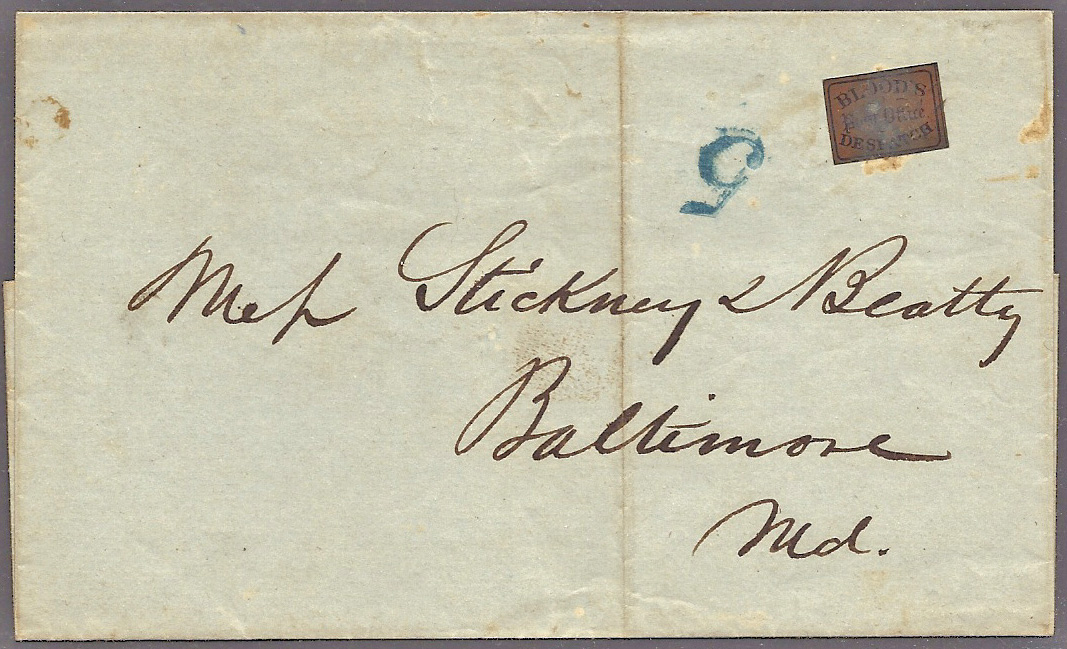 BLOOD'S
Post Office
DESPATCH
5
Mess Stickney & Beatty
Baltimore
Md.